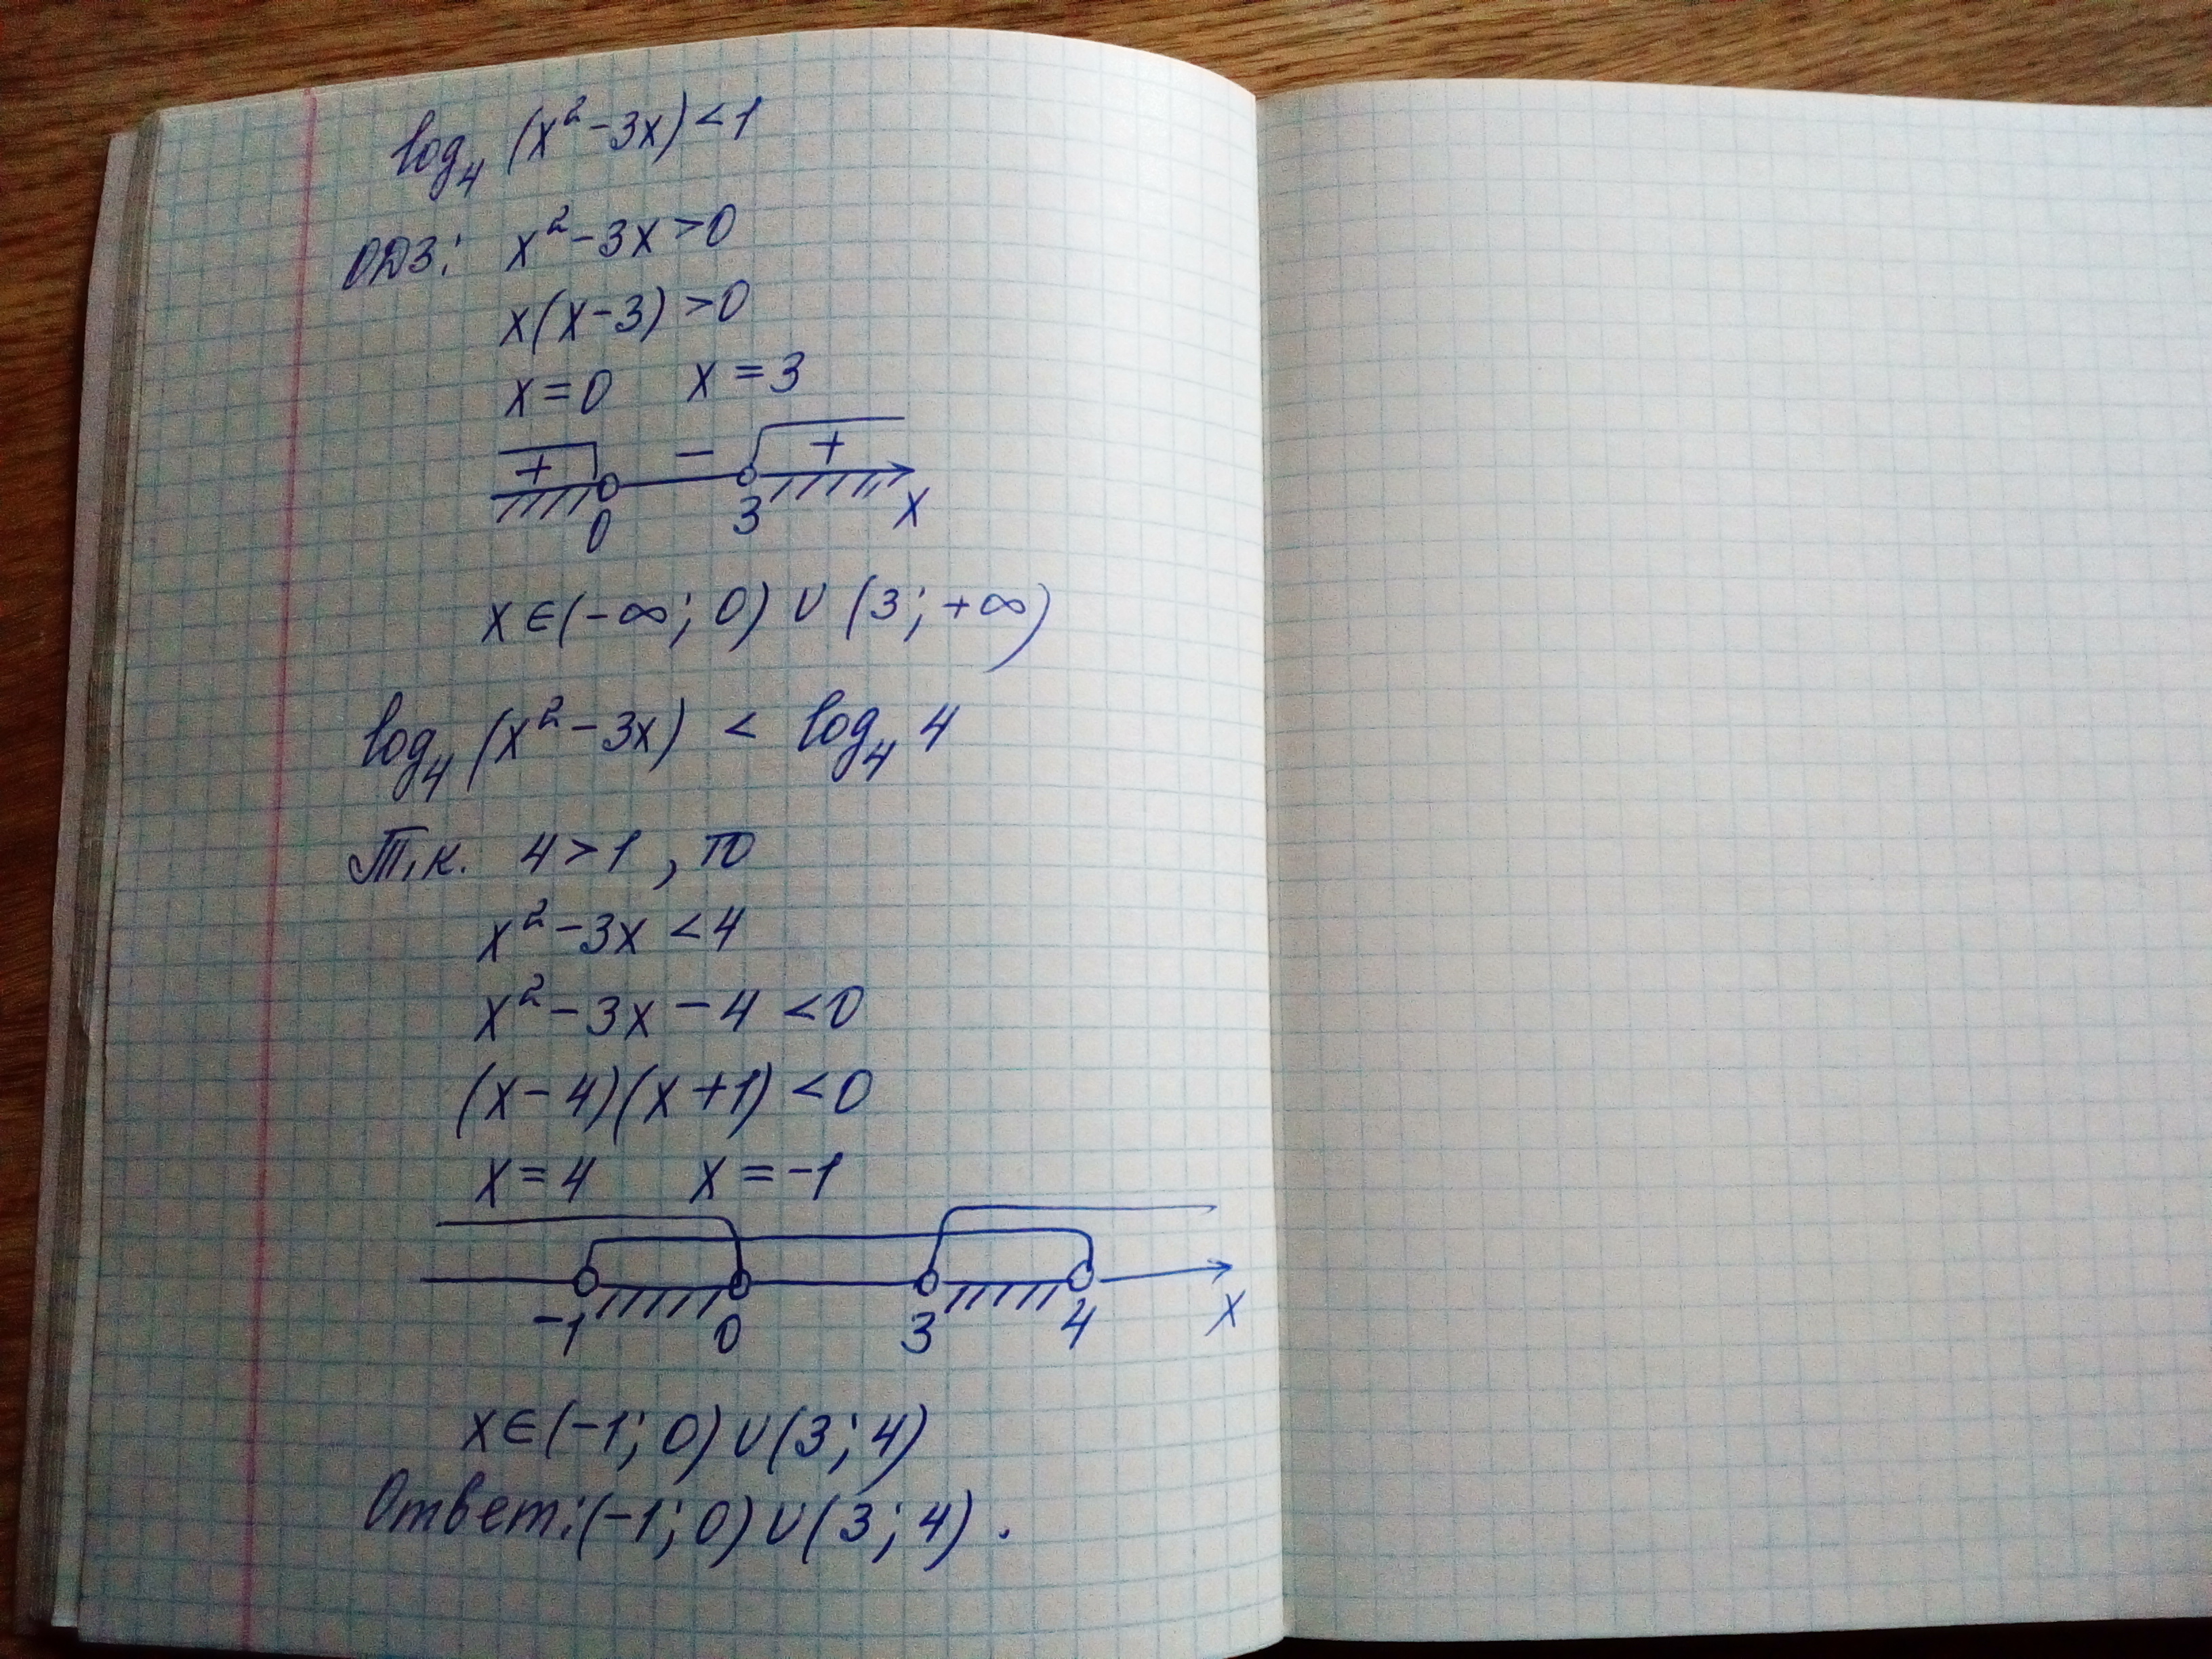 log₄ (x² - 3x) < 1
ОДЗ: x² - 3x > 0
x(x - 3) > 0
x = 0 x = 3
+ - +
0 3 x
x ∈ (-∞; 0) ∪ (3; +∞)
log₄ (x² - 3x) < log₄ 4
Т.к. 4 > 1, то
x² - 3x < 4
x² - 3x - 4 < 0
(x - 4)(x + 1) < 0
x = 4 x = -1
-1 0 3 4 x
x ∈ (-1; 0) ∪ (3; 4)
Ответ: (-1; 0) ∪ (3; 4).